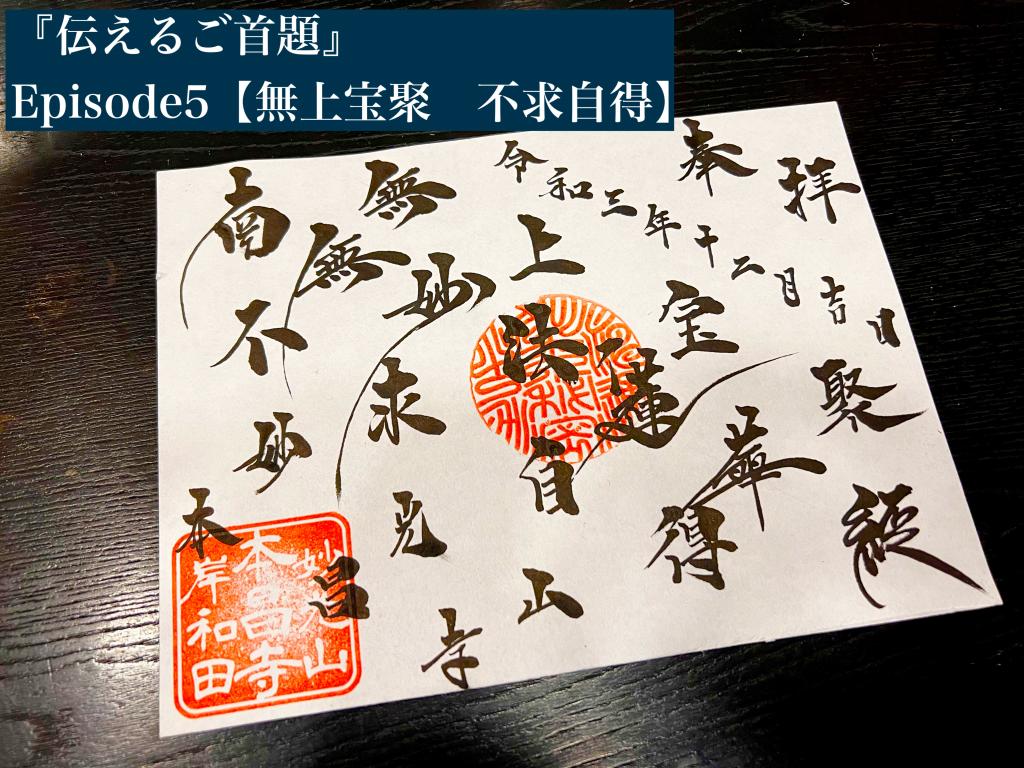 『伝えるご首題』
Episode5【無上宝聚　不求自得】
奉拝
令和三年十二月吉日
無上宝聚
南無妙法蓮華経
不求自得
妙光山
本昌寺
妙光山
本昌寺
岸和田